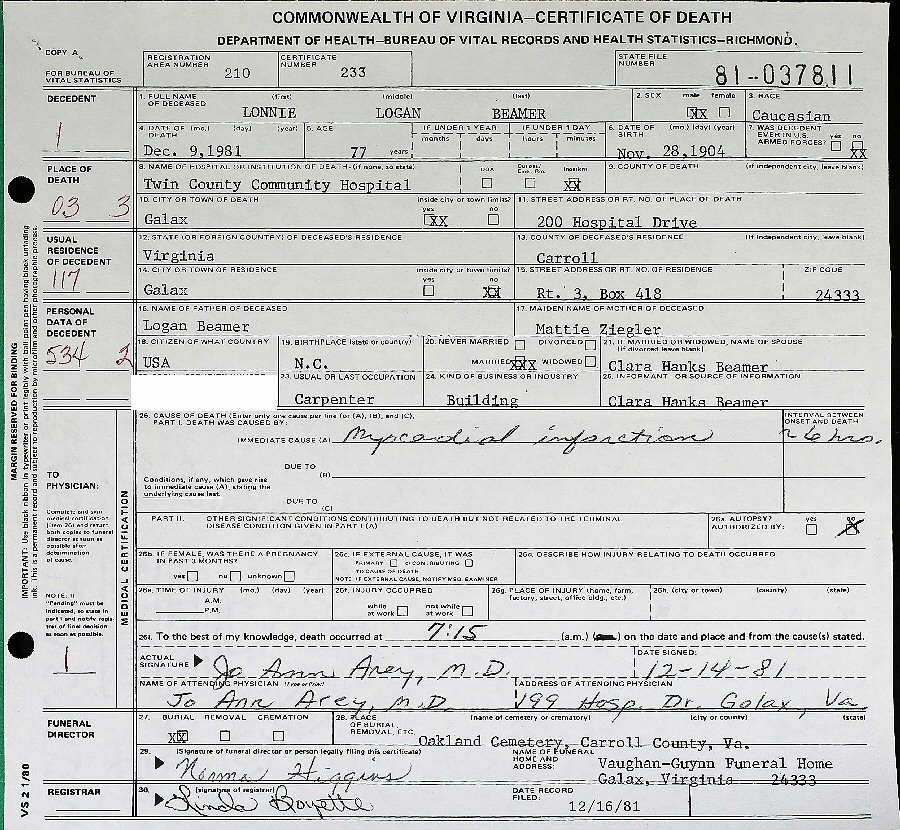 COMMONWEALTH OF VIRGINIA—CERTIFICATE OF DEATH
DEPARTMENT OF HEALTH—BUREAU OF VITAL RECORDS AND HEALTH STATISTICS—RICHMOND
COPY A
FOR BUREAU OF VITAL STATISTICS
REGISTRATION AREA NUMBER 210
CERTIFICATE NUMBER 233
STATE FILE NUMBER 81-037811
DECEDENT
1
1. FULL NAME OF DECEASED (first) (middle) (last)
LONNIE LOGAN BEAMER
2. SEX male female
XX
3. RACE
Caucasian
4. DATE OF DEATH (mo.) (day) (year)
Dec. 9,1981
5. AGE
77 years
IF UNDER 1 YEAR
months days
IF UNDER 1 DAY
hours minutes
6. DATE OF BIRTH (mo.) (day) (year)
Nov. 28,1904
7. WAS DECEDENT EVER IN U.S. ARMED FORCES? yes no
XX
PLACE OF DEATH
03 3
8. NAME OF HOSPITAL OR INSTITUTION OF DEATH (if none, so state)
Twin County Community Hospital
DOA
Inpatient
XX
9. COUNTY OF DEATH (if independent city, leave blank)
10. CITY OR TOWN OF DEATH inside city or town limits? yes no
Galax XX
11. STREET ADDRESS OR RT. NO. OF PLACE OF DEATH
200 Hospital Drive
USUAL RESIDENCE OF DECEDENT
117
12. STATE (OR FOREIGN COUNTRY) OF DECEASED'S RESIDENCE
Virginia
13. COUNTY OF DECEASED'S RESIDENCE (if independent city, leave blank)
Carroll
14. CITY OR TOWN OF RESIDENCE inside city or town limits? yes no
Galax XX
15. STREET ADDRESS OR RT. NO. OF RESIDENCE ZIP CODE
Rt. 3, Box 418 24333
PERSONAL DATA OF DECEDENT
534 2
16. NAME OF FATHER OF DECEASED
Logan Beamer
17. MAIDEN NAME OF MOTHER OF DECEASED
Mattie Ziegler
18. CITIZEN OF WHAT COUNTRY
USA
19. BIRTHPLACE (state or country)
N.C.
20. NEVER MARRIED DIVORCED
MARRIED XXX WIDOWED
21. IF MARRIED OR WIDOWED, NAME OF SPOUSE (if divorced leave blank)
Clara Hanks Beamer
23. USUAL OR LAST OCCUPATION
Carpenter
24. KIND OF BUSINESS OR INDUSTRY
Building
25. INFORMANT OR SOURCE OF INFORMATION
Clara Hanks Beamer
MARGIN RESERVED FOR BINDING
IMPORTANT: Use black ribbon in typewriter or print legibly with ball point pen having black unfading ink. This is a permanent record and subject to reproduction by microfilm and other photographic process.
TO PHYSICIAN:
Complete and sign medical certification (item 26) and return both copies to funeral director as soon as possible after determination of cause.
NOTE: If "Pending" must be indicated, so state in part I and notify registrar of final decision as soon as possible.
1
MEDICAL CERTIFICATION
26. CAUSE OF DEATH (Enter only one cause per line for (A), (B), and (C).
PART I. DEATH WAS CAUSED BY:
INTERVAL BETWEEN ONSET AND DEATH
IMMEDIATE CAUSE (A) Myocardial infarction ~6 hrs.
DUE TO
(B)
Conditions, if any, which gave rise to immediate cause (A), stating the underlying cause last.
DUE TO
(C)
PART II. OTHER SIGNIFICANT CONDITIONS CONTRIBUTING TO DEATH BUT NOT RELATED TO THE TERMINAL DISEASE CONDITION GIVEN IN PART I (A)
26a. AUTOPSY? yes no
AUTHORIZED BY: X
26b. IF FEMALE, WAS THERE A PREGNANCY IN PAST 3 MONTHS?
yes no unknown
26c. IF EXTERNAL CAUSE, IT WAS
PRIMARY or CONTRIBUTING
TO CAUSE OF DEATH
NOTE: IF EXTERNAL CAUSE, NOTIFY MED. EXAMINER
26d. DESCRIBE HOW INJURY RELATING TO DEATH OCCURRED
26e. TIME OF INJURY (mo.) (day) (year)
A.M.
P.M.
26f. INJURY OCCURRED
while at work not while at work
26g. PLACE OF INJURY (home, farm, factory, street, office bldg., etc.)
26h. (city or town) (county) (state)
26i. To the best of my knowledge, death occurred at 7:15 (a.m.) on the date and place and from the cause(s) stated.
ACTUAL SIGNATURE Jo Ann Arey, M.D.
DATE SIGNED:
12-14-81
NAME OF ATTENDING PHYSICIAN (Type or Print)
Jo Ann Arey, M.D.
ADDRESS OF ATTENDING PHYSICIAN
199 Hosp. Dr. Galax, Va
FUNERAL DIRECTOR
27. BURIAL REMOVAL CREMATION
XX
28. PLACE OF BURIAL, REMOVAL, ETC. (name of cemetery or crematory) (city or county) (state)
Oakland Cemetery, Carroll County, Va.
29. (Signature of funeral director or person legally filing this certificate)
Norma Higgins
NAME OF FUNERAL HOME AND ADDRESS:
Vaughan-Guynn Funeral Home
Galax, Virginia 24333
REGISTRAR
30. (signature of registrar)
Linda Boyette
DATE RECORD FILED:
12/16/81
VS 2 1/80